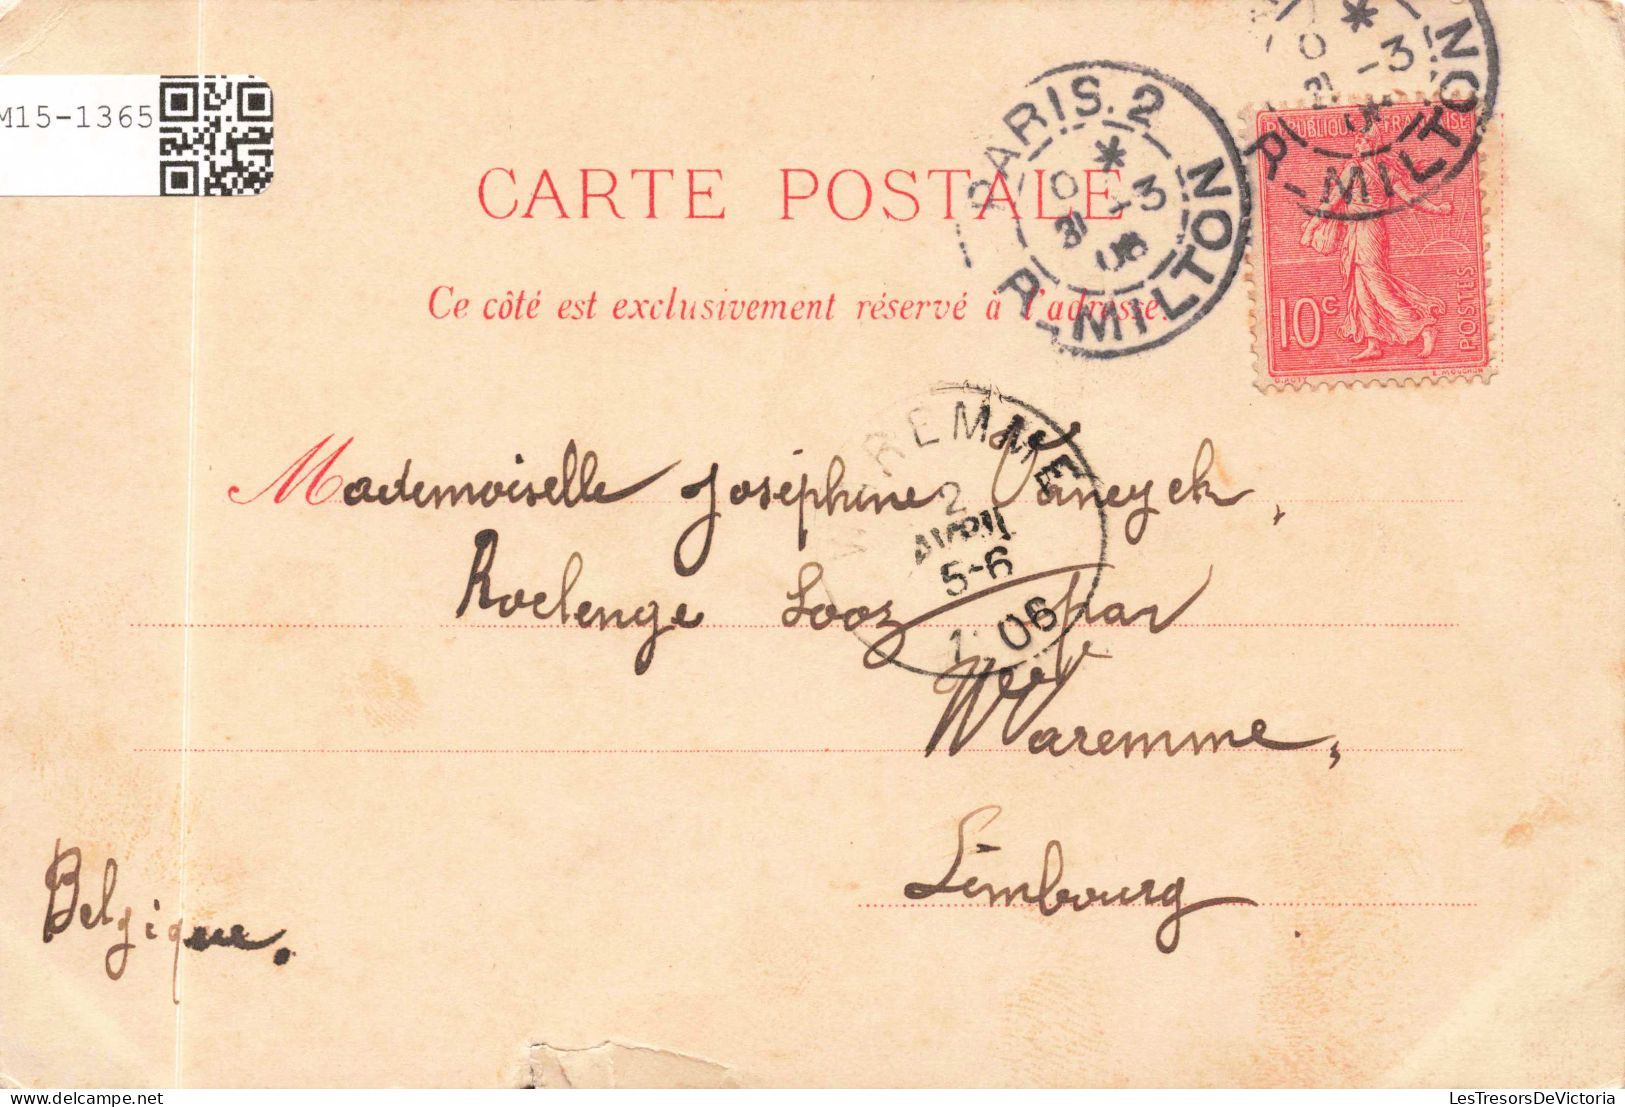 M15-1365
PARIS.2
R-MILTON
* 0 31 -3 06
* -3
R-MILTON
REPUBLIQUE FRANÇAISE
10c
POSTES
O. ROTY
E. MOUCHON
CARTE POSTALE
Ce côté est exclusivement réservé à l'adresse.
WAREMME
2
AVRIL
5-6
1906
Mademoiselle Joséphine Vaneyck,
Roclenge Looz par
Waremme,
Limbourg
Belgique.
LesTresorsDeVictoria